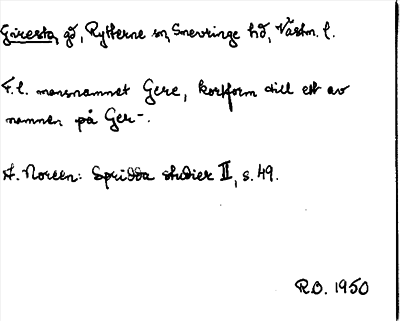 Gäresta, gd, Rytterne sn, Snevringe hd, Västm. l.
F. l. mansnamnet Gere, kortform till ett av
namnen på Ger-.
A. Noreen: Spridda studier II, s. 49.
R.O. 1950